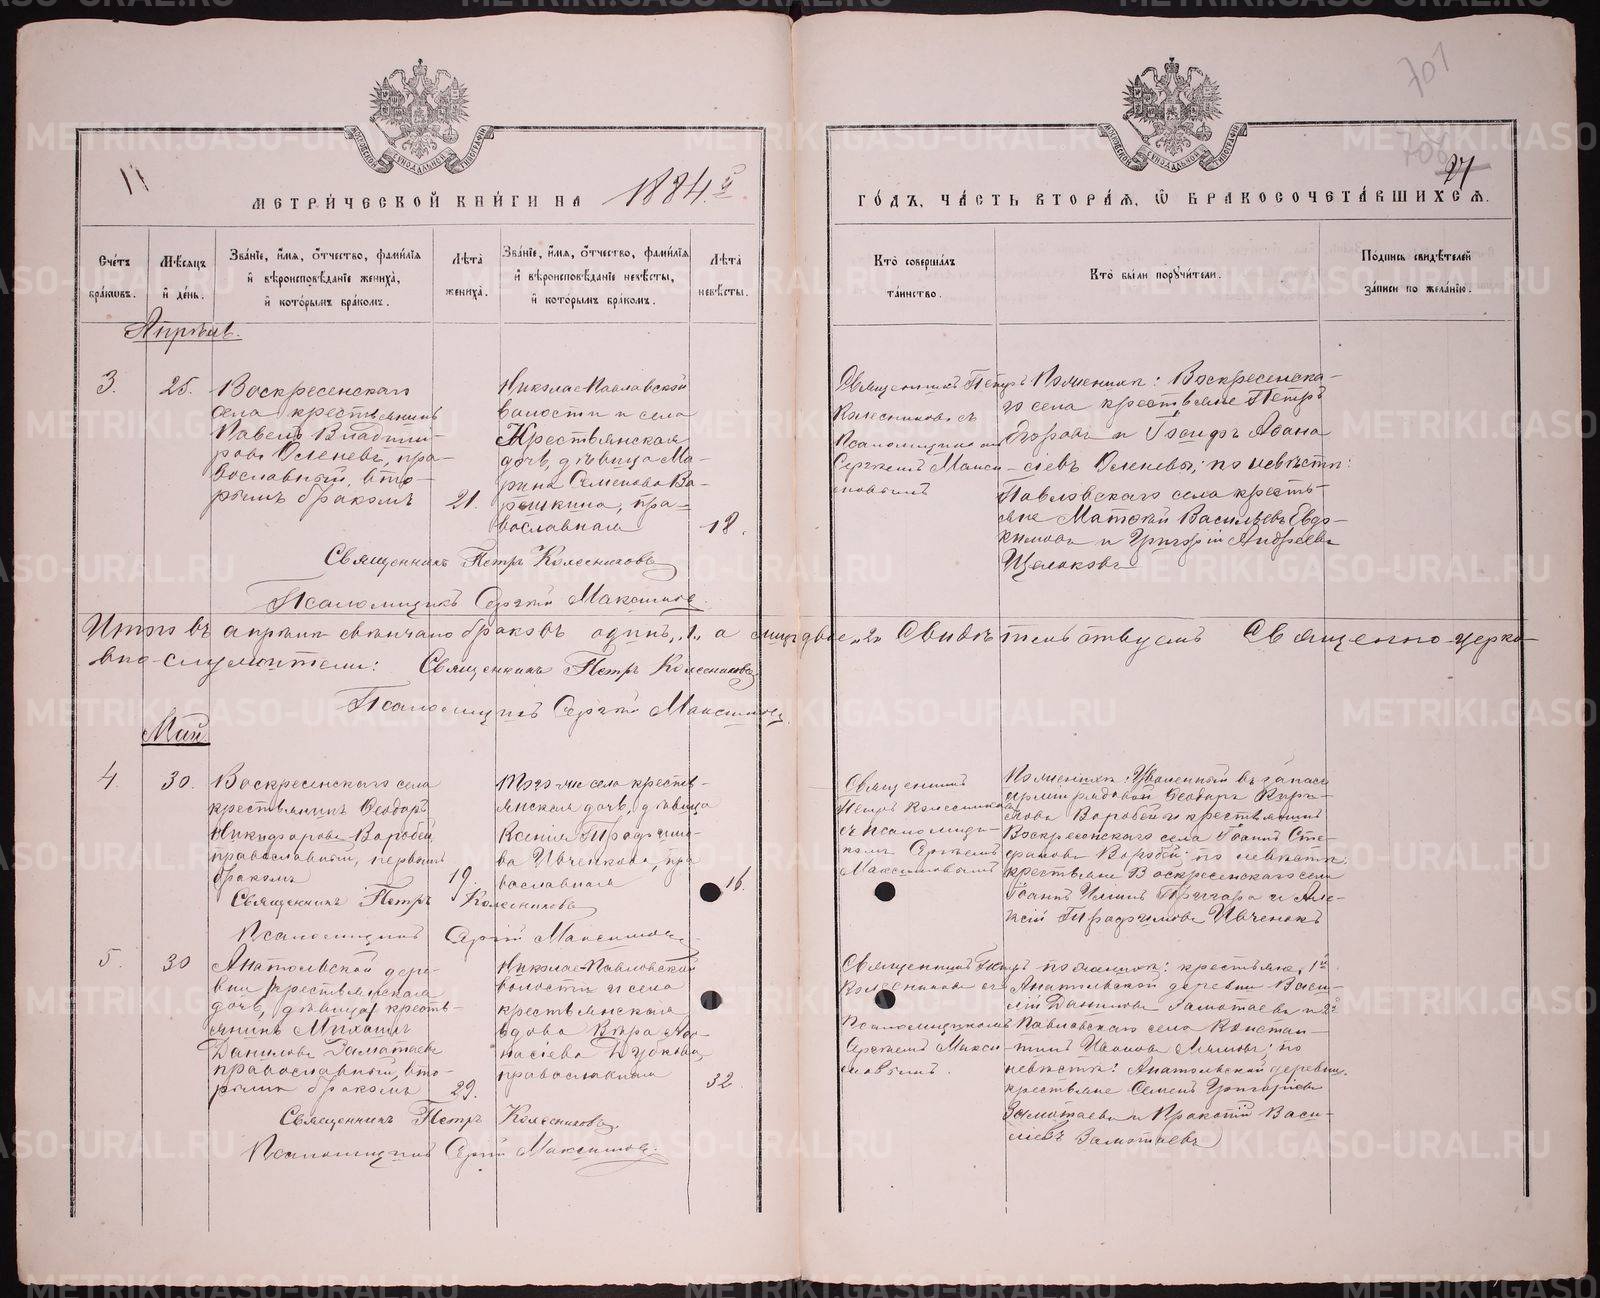 701
11
27
МЕТРИЧЕСКОЙ КНИГИ НА 1884й ГОДЪ, ЧАСТЬ ВТОРАЯ, Ѡ БРАКОСОЧЕТАВШИХСЯ.
Счетъ браковъ.
Мѣсяцъ и день.
Званіе, имя, отчество, фамилія и вѣроисповѣданіе жениха, и которымъ бракомъ.
Лѣта жениха.
Званіе, имя, отчество, фамилія и вѣроисповѣданіе невѣсты, и которымъ бракомъ.
Лѣта невѣсты.
Кто совершалъ таинство.
Кто были поручители.
Подпись свидѣтелей записи по желанію.
Апрѣль.
3.
25.
Воскресенскаго
села крестьянинъ
Павелъ Владими-
ровъ Оленевъ, пра-
вославный, вто-
рымъ бракомъ
21.
Николае-Павловской
волости и села
Крестьянская
дочь, дѣвица Ма-
рина Семенова Ва-
пра-
вославная
18.
Священникъ Петръ
Колесниковъ съ
Псаломщикомъ
Сергіемъ Макси-
мовымъ
По женихѣ: Воскресенска-
го села крестьяне Петръ
Егоровъ и Іосифъ Аѳана-
сіевъ Оленевы; по невѣстѣ:
Павловскаго села кресть-
яне Матѳей Васильевъ Евдо-
кимовъ и Григорій Андреевъ
Щелаковъ
Священникъ Петръ Колесниковъ
Псаломщикъ Сергій Максимовъ.
Итого въ апрѣлѣ свѣнчано браковъ одинъ „1„ а лицъ двое „2„ Свидѣтельствуемъ Священно-церко-
вно-служители: Священникъ Петръ Колесниковъ
Псаломщикъ Сергій Максимовъ.
Май
4.
30.
Воскресенскаго села
крестьянинъ Ѳеодоръ
Никифоровъ Воробей
православный, первымъ
бракомъ
19.
Того же села кресть-
янская дочь, дѣвица
Ксенія Трофимо-
ва Ивченкова, пра
вославная
16.
Священникъ
Петръ Колесниковъ
съ псаломщи-
комъ Сергіемъ
Максимовымъ
По женихѣ: Уволенный въ запасъ
арміи рядовой Ѳеодоръ Кири-
ловъ Воробей и крестьянинъ
Воскресенскаго села Іоаннъ Сте-
фановъ Воробей; по невѣстѣ:
крестьяне Воскресенскаго села
Іоаннъ и Але-
ксій Трофимовъ Ивченокъ
Священникъ Петръ Колесниковъ
Псаломщикъ Сергій Максимовъ
5.
30
Анатольской дере-
вни крестьянская
дочь, дѣвица кресть-
янинъ Михаилъ
Даниловъ Замотаевъ
православный, вто-
рымъ бракомъ
29.
Николае-Павловской
волости и села
крестьянская
вдова Вѣра Аѳа-
насіева Дубкова,
православная
32
Священникъ Петръ
Колесниковъ съ
Псаломщикомъ
Сергіемъ Макси-
мовымъ.
По женихѣ: крестьяне, 1й
Анатольской деревни Васи-
лій Даниловъ Замотаевъ и 2й
Павловскаго села Констан-
тинъ Ивановъ по
невѣстѣ: Анатольской деревни,
крестьяне Семенъ Григорьевъ
Замотаевъ и Васи-
льевъ Замотаевъ
Священникъ Петръ Колесниковъ.
Псаломщикъ Сергій Максимовъ.
METRIKI.GASO-URAL.RU